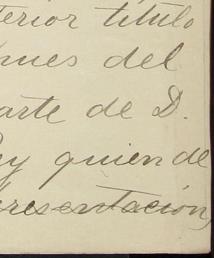 terior título
ones del
arte de D.
Ruy quien de
presentación,